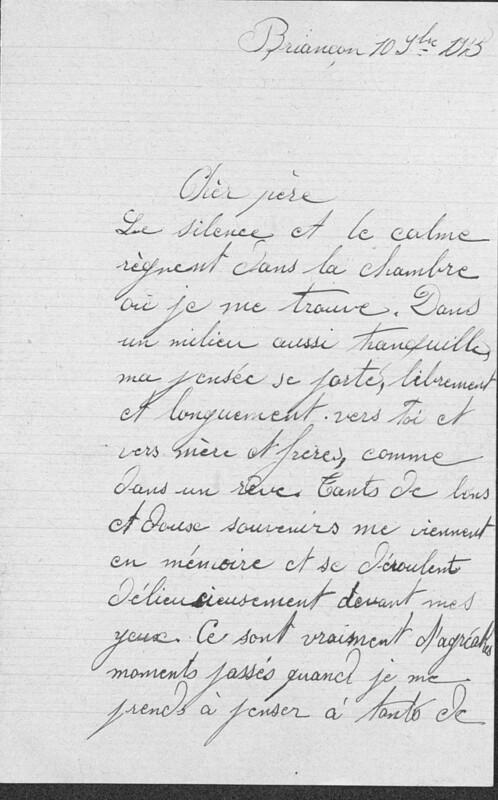 Briançon 10 9bre 1915
Chèr père
Le silence et le calme
règnent dans la chambre
où je me trouve. Dans
un milieu aussi tranquille,
ma pensée se porte, librement
et longuement vers toi et
vers mère et frères, comme
dans un rêve. Tants de bons
et doux souvenirs me viennent
en mémoire et se déroulent
délieucieusement devant mes
yeux. Ce sont vraiment d'agréables
moments passés quand je me
prends à penser à tants de